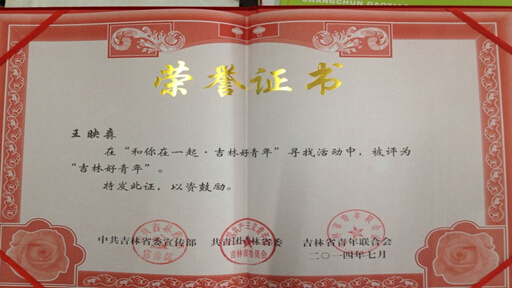 CHANGCHUN
荣誉证书
王映森
在“和你在一起·吉林好青年”寻找活动中，被评为
“吉林好青年”。
特发此证，以资鼓励。
中共吉林省委宣传部 共青团吉林省委 吉林省青年联合会
二〇一四年七月